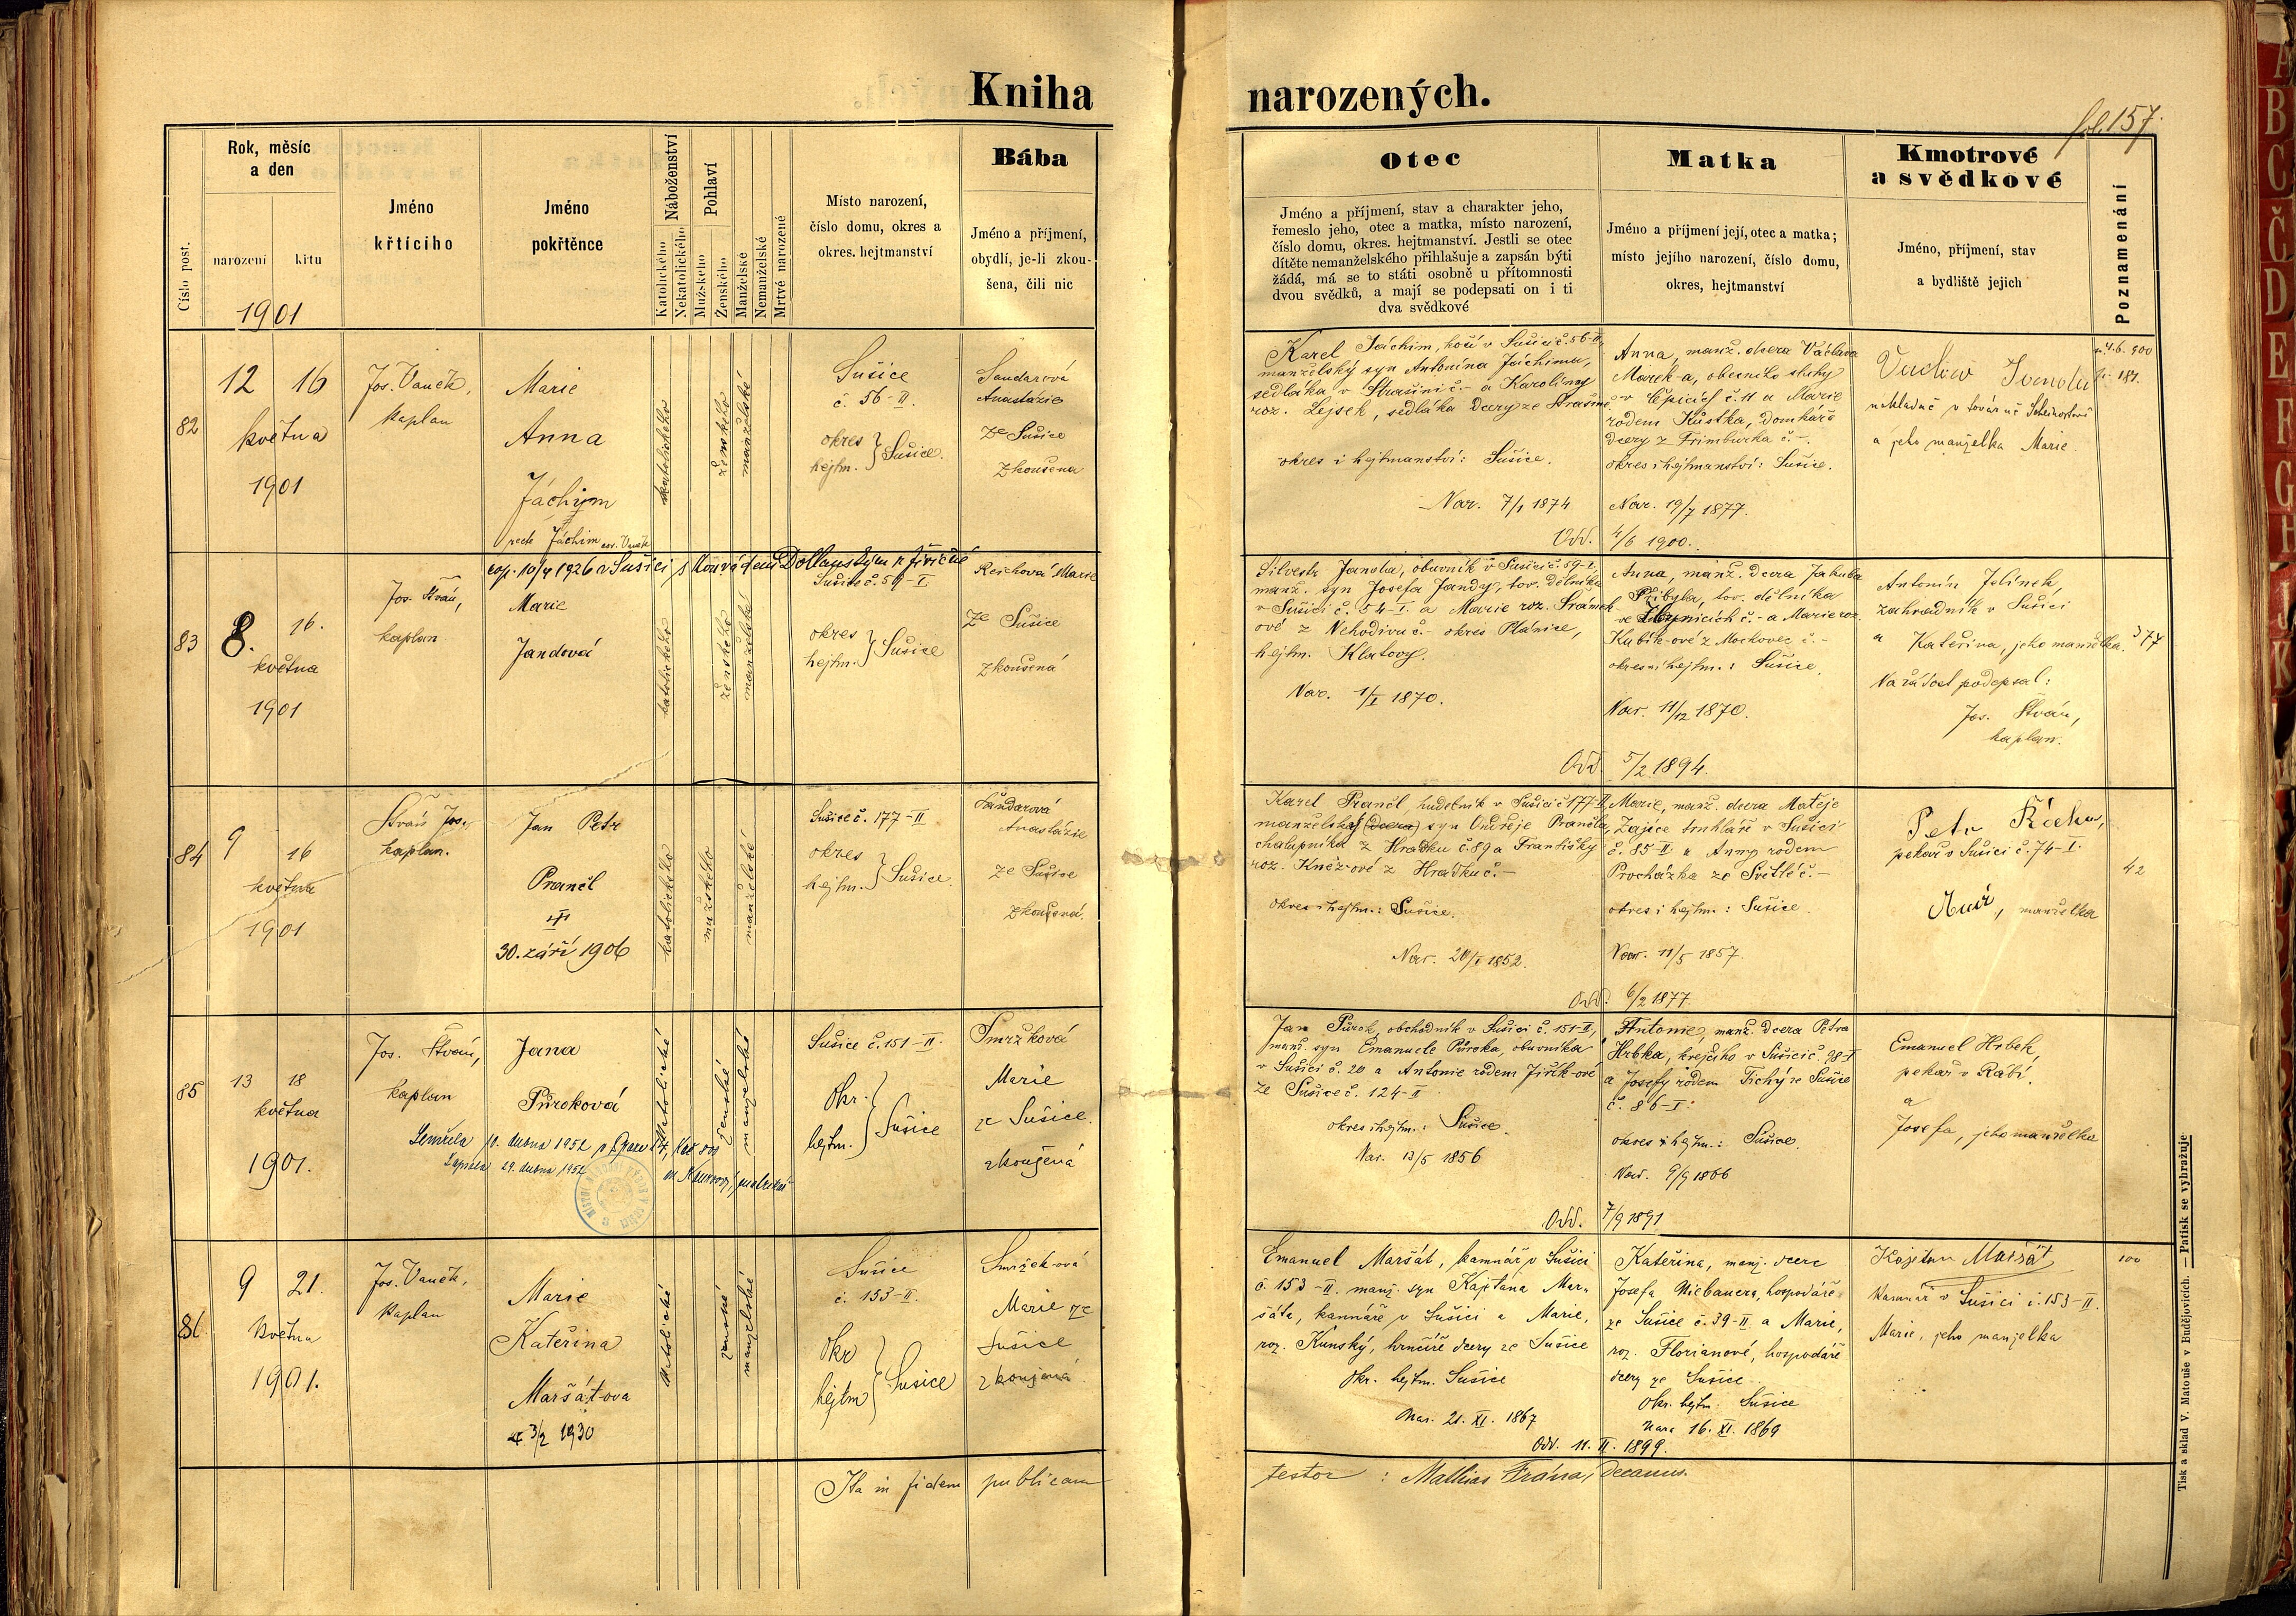 Kniha narozených.
fol. 157.
Číslo post.
Rok, měsíc
a den
narození
křtu
1901
Jméno
křtícího
Jméno
pokřtěnce
Náboženství
Katolického
Nekatolického
Pohlaví
Mužského
Ženského
Manželské
Nemanželské
Mrtvě narozené
Místo narození,
číslo domu, okres a
okres. hejtmanství
Bába
Jméno a příjmení,
obydlí, je-li zkou-
šena, čili nic
Otec
Jméno a příjmení, stav a charakter jeho,
řemeslo jeho, otec a matka, místo narození,
číslo domu, okres. hejtmanství. Jestli se otec
dítěte nemanželského přihlašuje a zapsán býti
žádá, má se to státi osobně u přítomnosti
dvou svědků, a mají se podepsati on i ti
dva svědkové
Matka
Jméno a příjmení její, otec a matka;
místo jejího narození, číslo domu,
okres, hejtmanství
Kmotrové
a svědkové
Jméno, příjmení, stav
a bydliště jejich
Poznamenání
82
12 16
května
1901
Jos. Vaněk,
kaplan
Marie
Anna
Jáchym
recte Jáchim
katolického
ženského
manželské
Sušice
č. 56-II.
okres
hejtm. } Sušice.
Sandarová
Anastázie
ze Sušice
zkoušená
Karel Jáchim, v Sušici č. 56-II,
manželský syn Antonína Jáchima,
sedláka v Strašíni č. - a Karoliny
roz. Lejsek, sedláka dcery ze Strašína
okres i hejtmanství: Sušice.
Nar. 7/1 1874
Anna, manž. dcera Václava
Marek-a, obecního sluhy
v č. 11 a Marie
rodem Kůstka, domkáře
dcery z č. -.
okres i hejtmanství: Sušice.
Nar. 19/7 1877.
Odd. 4/6 1900.
a jeho manželka Marie.
83
8. 16.
května
1901
Jos. Stráň,
kaplan
cop. 10/4 1926 v Sušici s
Marie
Jandová
katolického
ženského
manželské
Sušice č. 59-I.
okres
hejtm. } Sušice
Reichová Marie
ze Sušice
zkoušená
Silvestr Janda, obuvník v Sušici č. 59-I,
manž. syn Josefa Jandy, tov. dělníka
v Sušici č. 54-I. a Marie roz. Srámek-
ové z Nehodivu č. - okres Plánice,
hejtm. Klatovy.
Nar. 1/I 1870.
Anna, manž. dcera Jakuba
Přibyla, tov. dělníka
č. - a Marie roz.
Kubík-ové z Mochovec č. -
okres i hejtm.: Sušice.
Nar. 11/12 1870.
Odd. 5/2 1894.
Antonín Jelínek,
zahradník v Sušici
a Kateřina, jeho manželka.
Na žádost podepsal:
Jos. Stráň,
kaplan.
377
84
9 16
května
1901
Stráň Jos.,
kaplan.
Jan Petr
Prančl
30. září 1906
katolického
mužského
manželské
Sušice č. 177-II
okres
hejtm. } Sušice.
Sandarová
Anastázie
ze Sušice
zkoušená.
Karel Prančl, hudebník v Sušici č. 177-II,
manželský (dcera) syn Ondřeje Prančla,
chalupníka z Hrádku č. 89 a Františky
roz. Kněz-ové z Hrádku č. -
okres i hejtm.: Sušice.
Nar. 20/I 1852.
Marie, manž. dcera Matěje
Zajíce truhláře v Sušici
č. 85-II. a Anny rodem
Procházka ze Světlé č. -
okres i hejtm.: Sušice.
Nar. 11/5 1857.
Odd. 6/2 1877.
Petr Řícha,
pekař v Sušici č. 74-I.
manželka
42
85
13 18
května
1901.
Jos. Stráň,
kaplan
Jana
Půroková
Zemřela 10. dubna 1952 v
Zapsáno 29. dubna 1952
katolické
ženské
manželské
Sušice č. 151-II.
Okr.
hejtm. } Sušice
Smržková
Marie
ze Sušice.
zkoušená
Jan Půrok, obchodník v Sušici č. 151-II,
manž. syn Emanuele Půroka, obuvníka
v Sušici č. 20 a Antonie rodem Jiřík-ové
ze Sušice č. 124-II
okres i hejtm.: Sušice.
Nar. 13/5 1856
Antonie, manž. dcera Petra
Hrbka, krejčího v Sušici č. 98-I
a Josefy rodem Tichý ze Sušice
č. 86-I.
okres i hejtm.: Sušice.
Nar. 9/9 1866
Odd. 7/9 1891
Emanuel Hrbek,
pekař v Rábí.
a
Josefa, jeho manželka
86
9 21.
května
1901.
Jos. Vaněk,
kaplan
Marie
Kateřina
Maršátova
3/2 1930
katolické
ženské
manželské
Sušice
č. 153-II.
Okr
hejtm } Sušice
Smržek-ová
Marie ze
Sušice
zkoušená.
Emanuel Maršát, kamnář v Sušici
č. 153-II. manž. syn Kajetána Mar-
šáta, kamnáře v Sušici a Marie,
roz. Kunský, hrnčíře dcery ze Sušice
Okr. hejtm. Sušice
Nar. 21. XI. 1867
Kateřina, manž. dcera
Josefa Niebauera, hospodáře
ze Sušice č. 39-II. a Marie,
roz. Florianové, hospodáře
dcery ze Sušice.
Okr. hejtm. Sušice
Nar. 16. XI. 1869
Odd. 11. II. 1899.
Kajetan Maršát
kamnář v Sušici č. 153-II.
Marie, jeho manželka
100
Ita in fidem publicam
testor : Mathias Frána, Decanus.
Tisk a sklad V. Matouše v Budějovicích. — Patisk se vyhražuje
A
B
C
Č
D
E
F
G